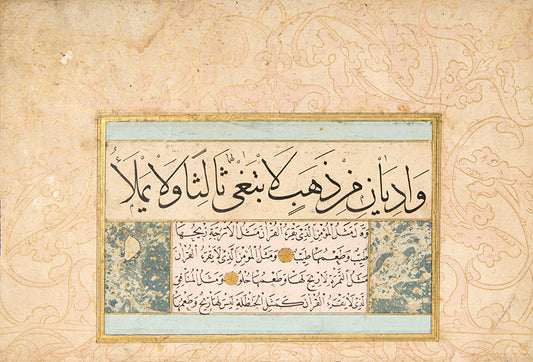 واديان من ذهب لابتغى لهما ثالثا ولا يملأ
وة مثل المؤمن الذي يقرء القرآن مثل الاترجة ريحها
طيب وطعمها طيب ومثل المؤمن الذي لا يقرء القرآن
مثل التمرة لا ريح لها وطعمها حلو ومثل المنافق
الذي لا يقرء القرآن كمثل الحنظلة ليس لها ريح وطعمها